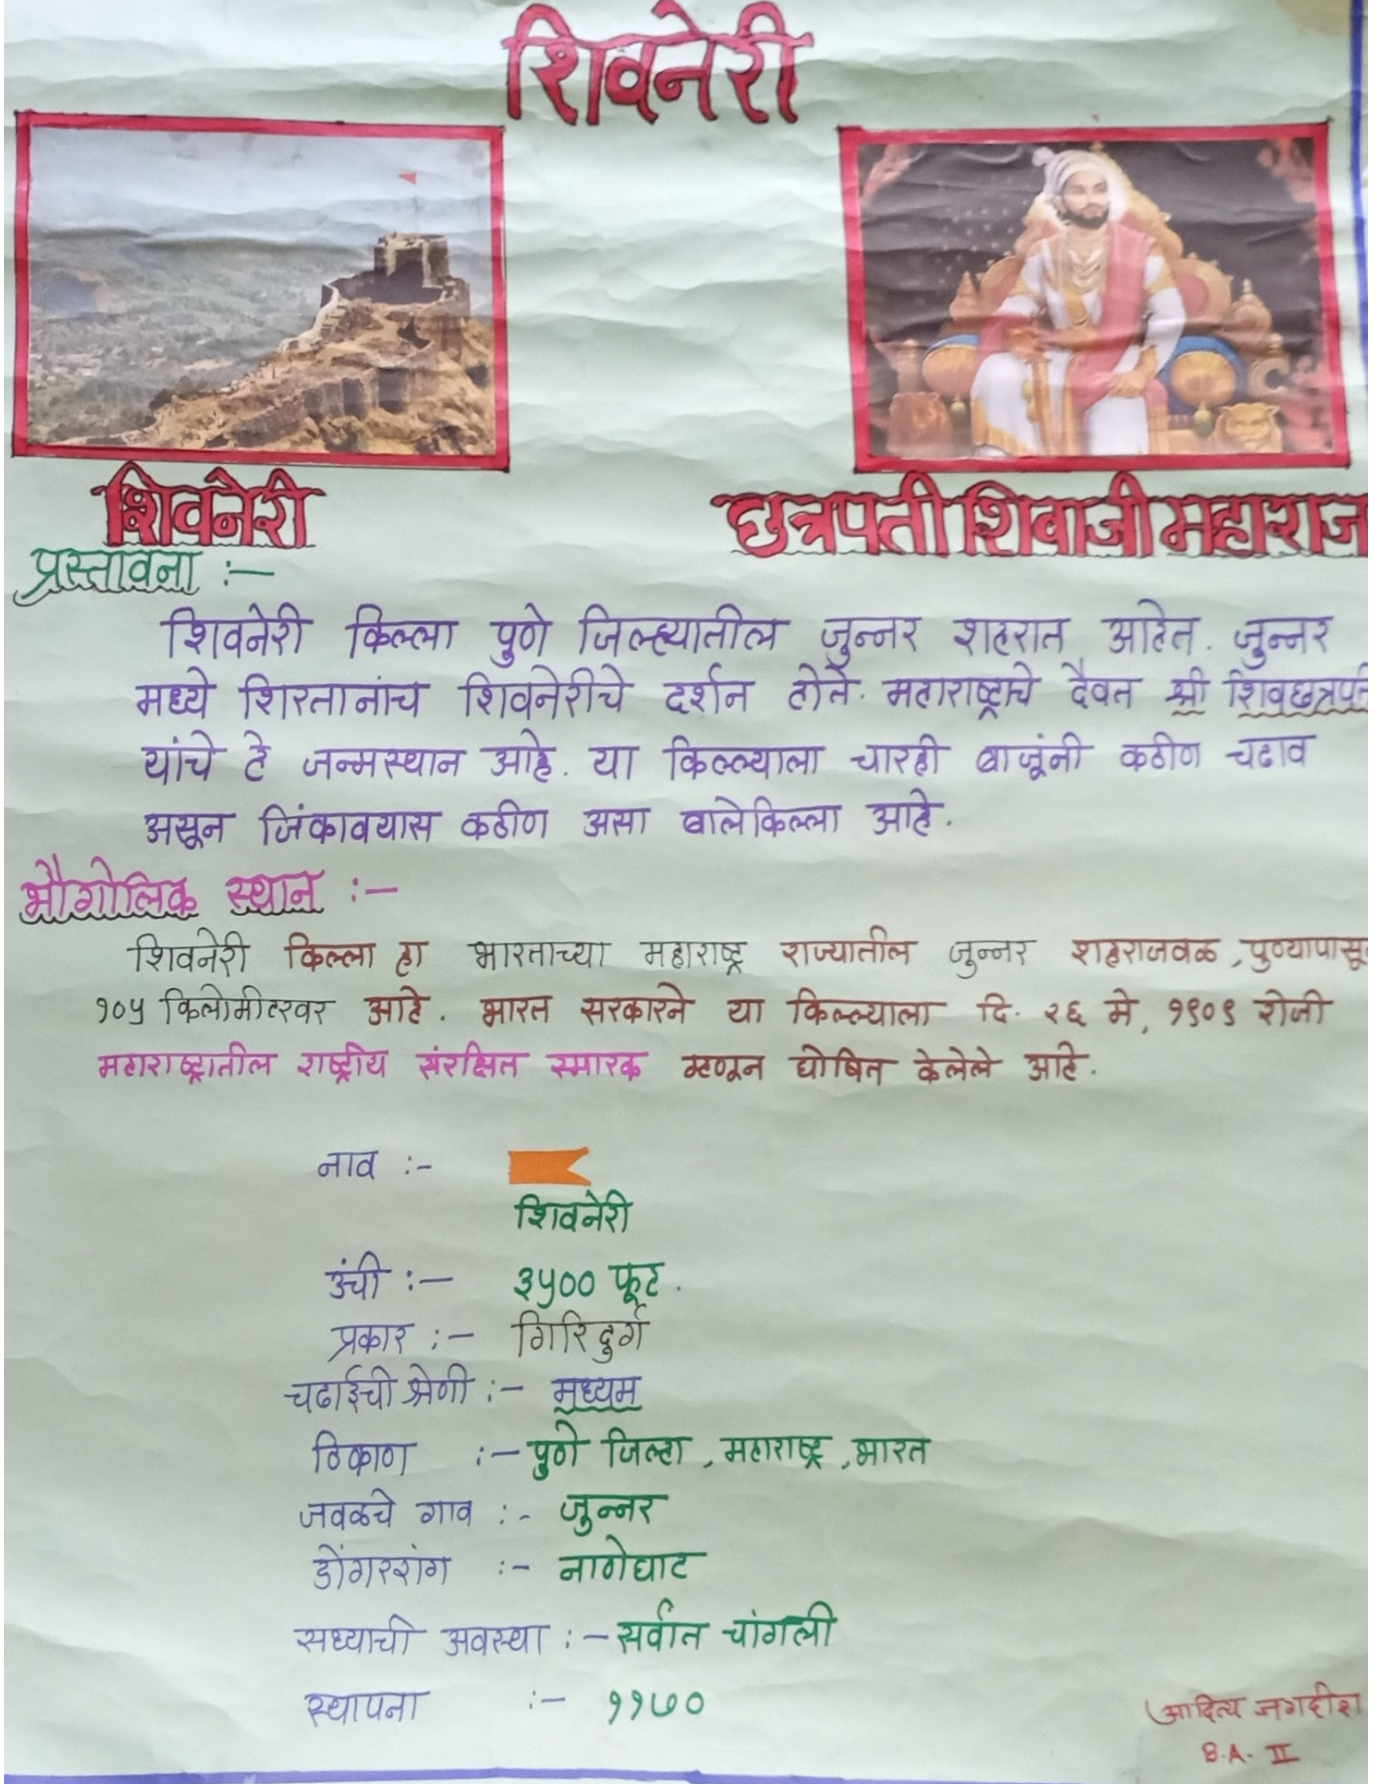 शिवनेरी
शिवनेरी
छत्रपती शिवाजी महाराज
प्रस्तावना :-
शिवनेरी किल्ला पुणे जिल्ह्यातील जुन्नर शहरात आहेत. जुन्नर
मध्ये शिरतानांच शिवनेरीचे दर्शन होते. महाराष्ट्राचे दैवत श्री शिवछत्रपती
यांचे हे जन्मस्थान आहे. या किल्ल्याला चारही बाजूंनी कठीण चढाव
असून जिंकावयास कठीण असा बालेकिल्ला आहे.
भौगोलिक स्थान :-
शिवनेरी किल्ला हा भारताच्या महाराष्ट्र राज्यातील जुन्नर शहराजवळ, पुण्यापासू
१०५ किलोमीटरवर आहे. भारत सरकारने या किल्ल्याला दि. २६ मे, १९०९ रोजी
महाराष्ट्रातील राष्ट्रीय संरक्षित स्मारक म्हणून घोषित केलेले आहे.
नाव :-
शिवनेरी
उंची :- ३५०० फूट.
प्रकार :- गिरिदुर्ग
चढाईची श्रेणी :- मध्यम
ठिकाण :- पुणे जिल्हा, महाराष्ट्र, भारत
जवळचे गाव :- जुन्नर
डोंगररांग :- नाणेघाट
सध्याची अवस्था :- सर्वात चांगली
स्थापना :- ११७०
आदित्य जगदीश
B.A. II